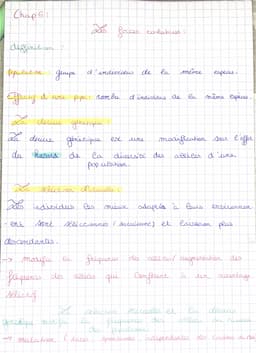 Chap 6 :
Les forces évolutives :
définition :
population : groupe d'individus de la même espèce.
Effectif d'une pop : nombre d'individus de la même espèce.
La dérive génétique :
La dérive génétique est une modification sous l'effet
du hasard de la diversité des allèles d'une
population.
La sélection naturelle :
Les individus les mieux adaptés à leurs environnement
sont sélectionnés et laisseront plus
descendantes.
→ modifie la fréquence des allèles / augmentation des
fréquence des allèles qui confèrent à un avantage
sélectif.
sélection naturelle et la dérive
génétique modifie la fréquence des allèles
de population
→ mutation